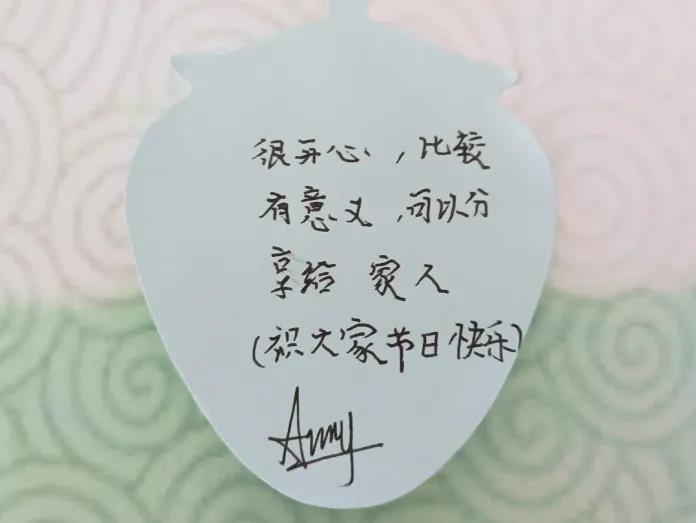 很开心，比较
有意义，可以分
享给 家人
(祝大家节日快乐)
Amy